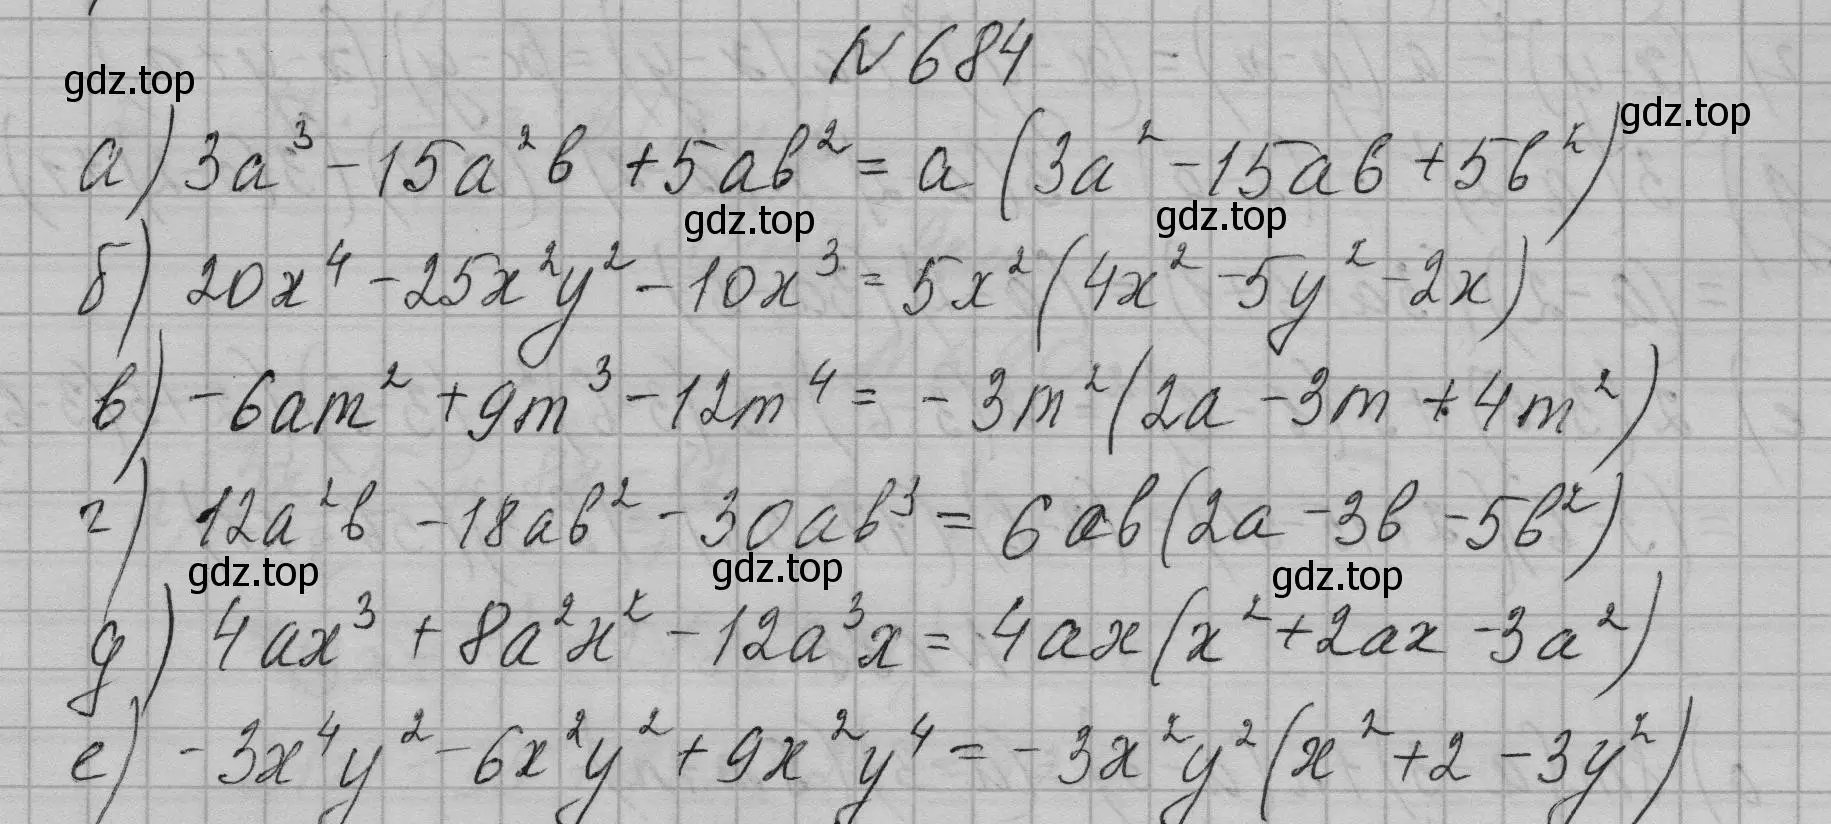 № 684
gdz.top
gdz.top
а) 3a³ - 15a²b + 5ab² = a (3a² - 15ab + 5b²)
gdz.top
gdz.top
б) 20x⁴ - 25x²y² - 10x³ = 5x² (4x² - 5y² - 2x)
в) -6am² + 9m³ - 12m⁴ = -3m² (2a - 3m + 4m²)
г) 12a²b - 18ab² - 30ab³ = 6ab (2a - 3b - 5b²)
gdz.top
gdz.top
gdz.top
д) 4ax³ + 8a²x² - 12a³x = 4ax (x² + 2ax - 3a²)
е) -3x⁴y² - 6x²y² + 9x²y⁴ = -3x²y² (x² + 2 - 3y²)